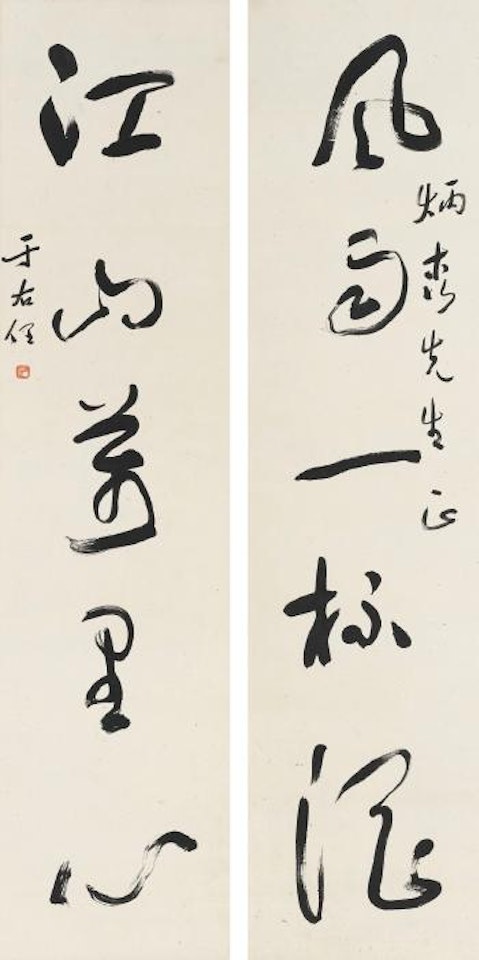 風雨一杯酒
炳 先生正
江山萬里心
于右任